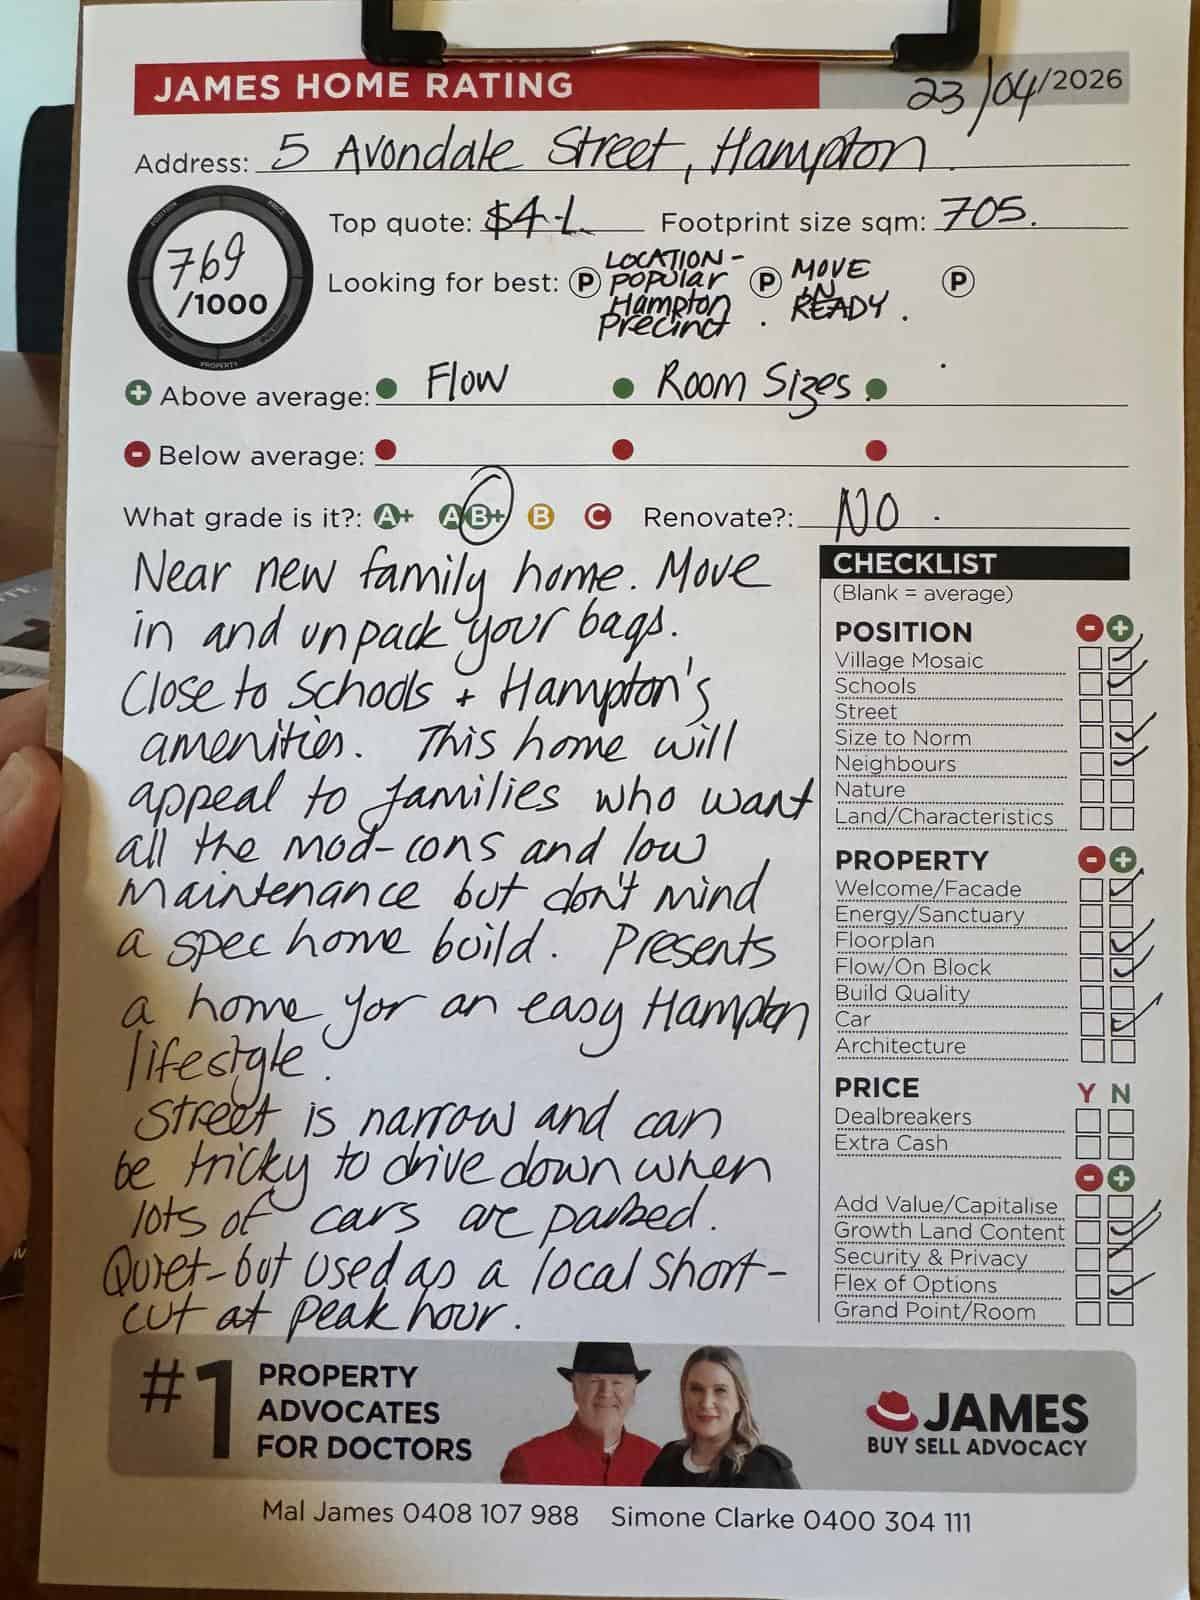 JAMES HOME RATING
23/04/2026
Address: 5 Avondale Street, Hampton
769
/1000
PROPERTY
Top quote: $4-L Footprint size sqm: 705.
Looking for best: P LOCATION - POPULAR Hampton Precinct. P MOVE IN READY. P
+ Above average: Flow Room Sizes.
- Below average:
What grade is it?: A+ A B+ B C Renovate?: NO.
Near new family home. Move
in and unpack your bags.
Close to Schools + Hampton's
amenities. This home will
appeal to families who want
all the mod-cons and low
maintenance but don't mind
a spec home build. Presents
a home for an easy Hampton
lifestyle.
Street is narrow and can
be tricky to drive down when
lots of cars are parked.
Quiet - but used as a local short-
cut at peak hour.
CHECKLIST
(Blank = average)
POSITION - +
Village Mosaic
Schools
Street
Size to Norm
Neighbours
Nature
Land/Characteristics
PROPERTY - +
Welcome/Facade
Energy/Sanctuary
Floorplan
Flow/On Block
Build Quality
Car
Architecture
PRICE Y N
Dealbreakers
Extra Cash
- +
Add Value/Capitalise
Growth Land Content
Security & Privacy
Flex of Options
Grand Point/Room
#1 PROPERTY
ADVOCATES
FOR DOCTORS
JAMES
BUY SELL ADVOCACY
Mal James 0408 107 988 Simone Clarke 0400 304 111